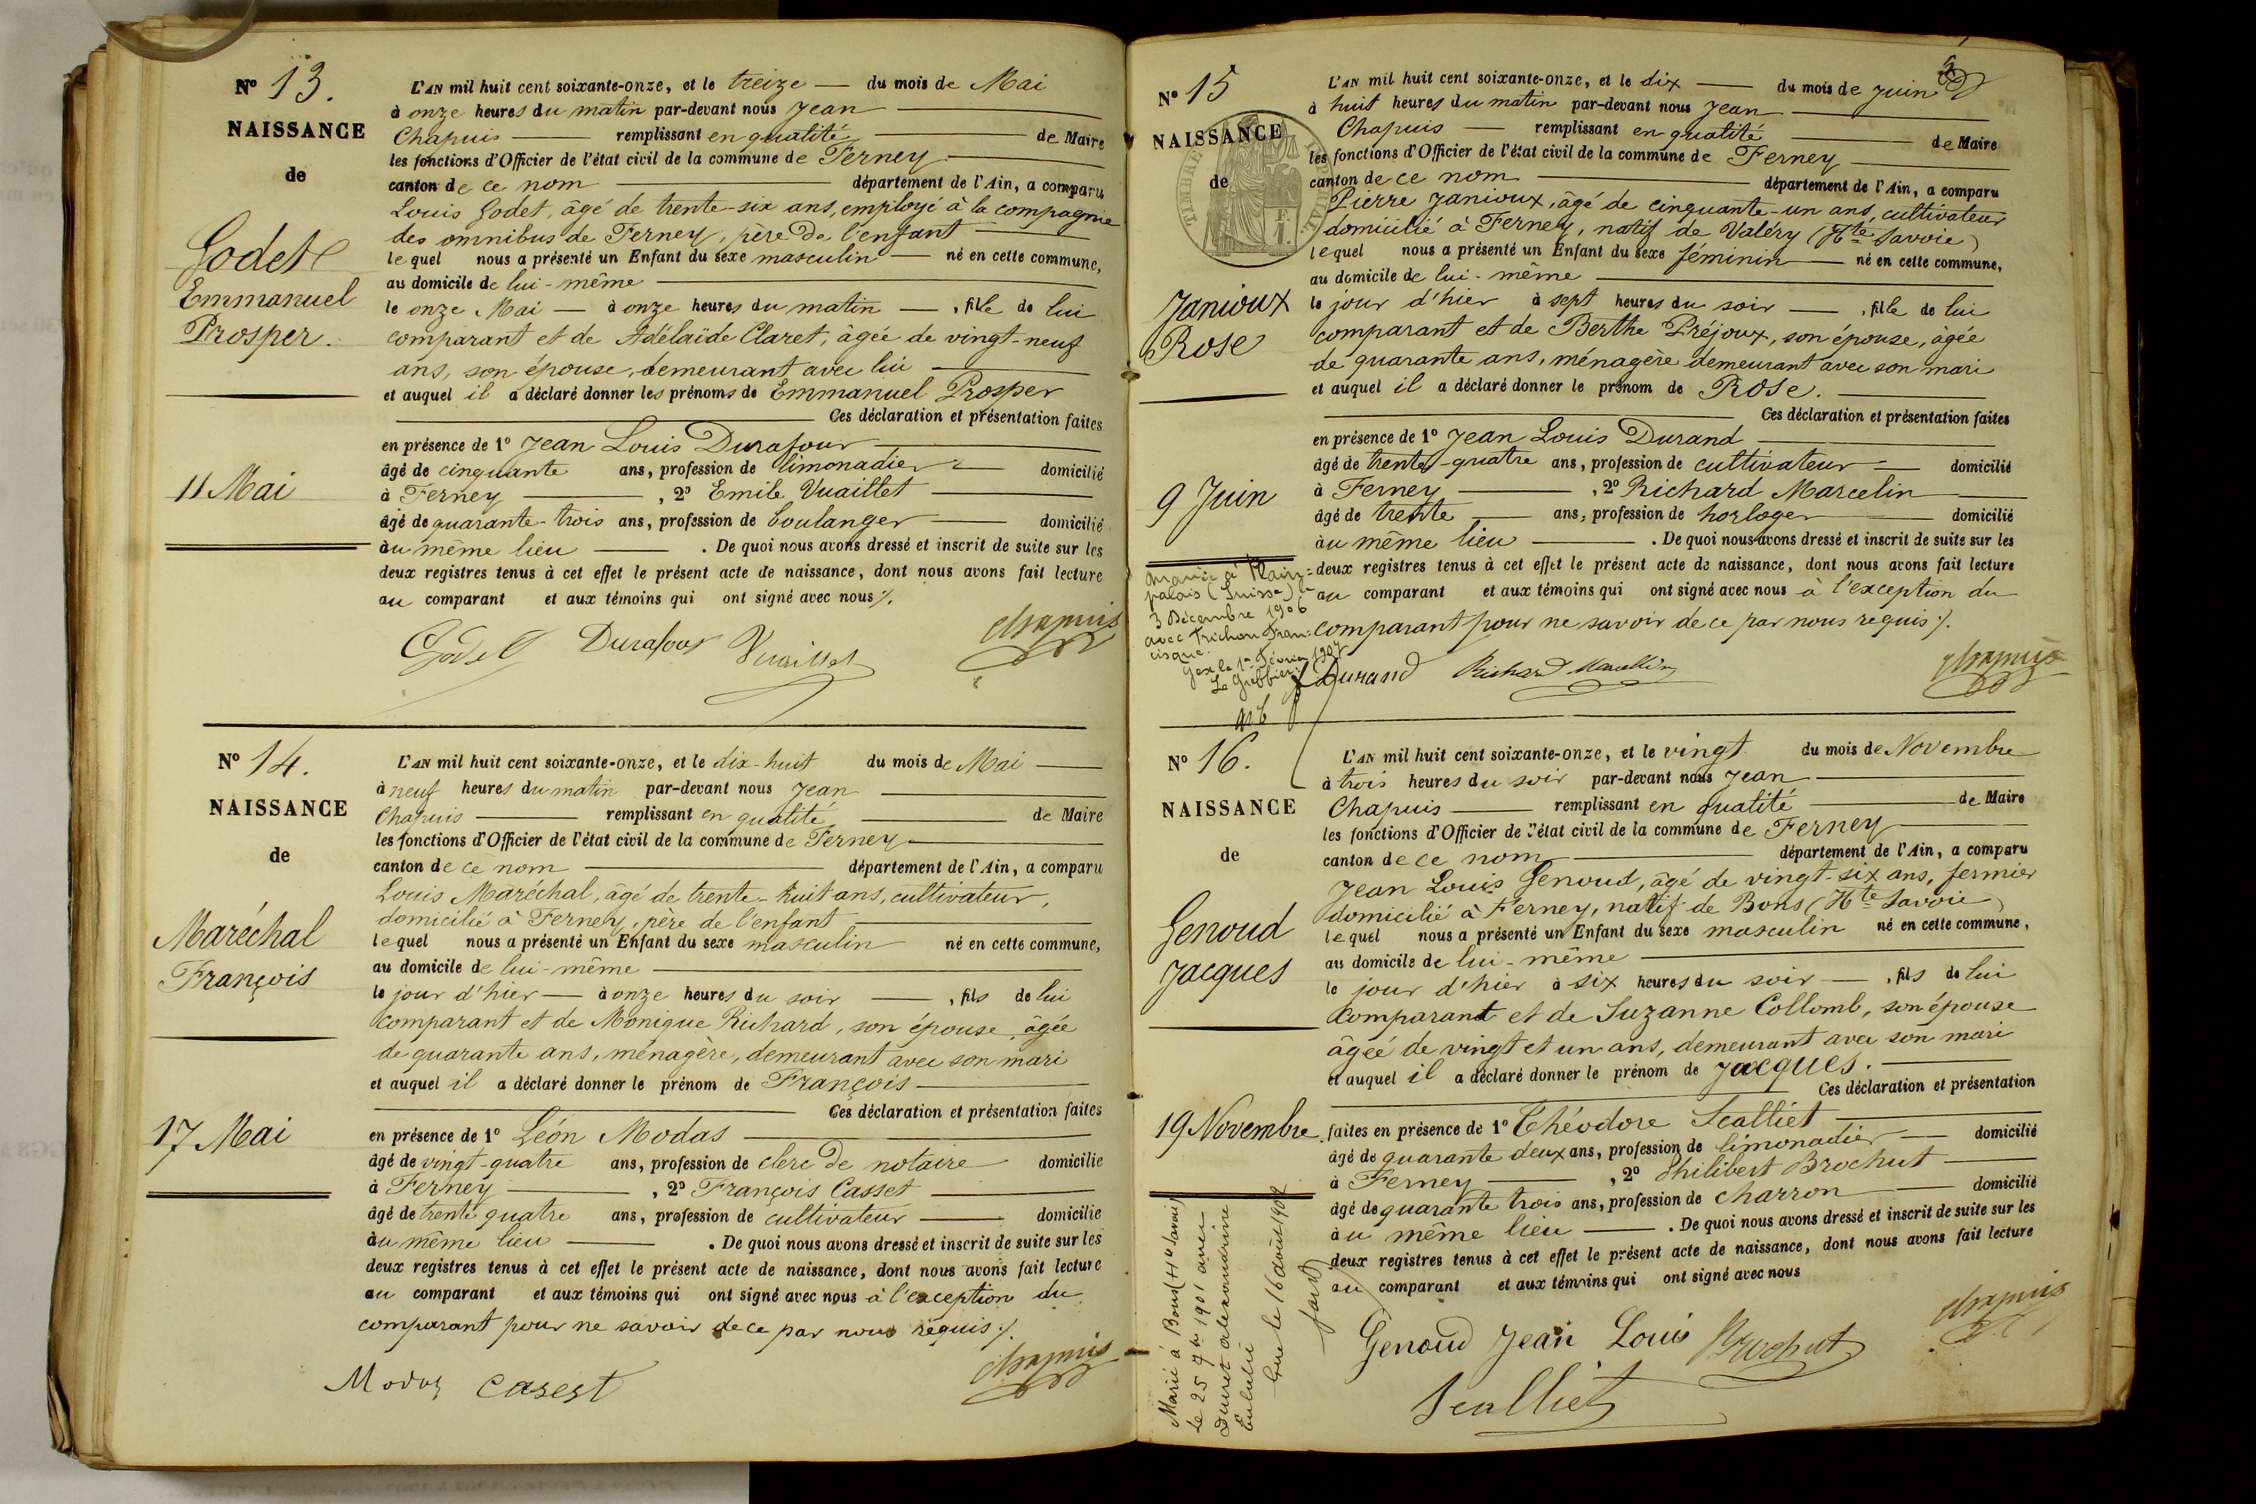 Nº 13.
NAISSANCE
de
Godet
Emmanuel
Prosper.
11 Mai
L'AN mil huit cent soixante-onze, et le treize du mois de Mai
à onze heures du matin par-devant nous Jean
Chapuis remplissant en qualité de Maire
les fonctions d'Officier de l'état civil de la commune de Ferney
canton de ce nom département de l'Ain, a comparu
Louis Godet, âgé de trente-six ans, employé à la compagnie
des omnibus de Ferney, père de l'enfant
lequel nous a présenté un Enfant du sexe masculin né en cette commune,
au domicile de lui-même
le onze Mai à onze heures du matin, fille de lui
comparant et de Adélaïde Claret, âgée de vingt-neuf
ans, son épouse, demeurant avec lui
et auquel il a déclaré donner les prénoms de Emmanuel Prosper
Ces déclaration et présentation faites
en présence de 1º Jean Louis Durafour
âgé de cinquante ans, profession de limonadier domicilié
à Ferney, 2º Emile Vuaillet
âgé de quarante-trois ans, profession de boulanger domicilié
au même lieu. De quoi nous avons dressé et inscrit de suite sur les
deux registres tenus à cet effet le présent acte de naissance, dont nous avons fait lecture
au comparant et aux témoins qui ont signé avec nous ⁒.
Godet Durafour Vuaillet Chapuis
Nº 14.
NAISSANCE
de
Maréchal
François
17 Mai
L'AN mil huit cent soixante-onze, et le dix-huit du mois de Mai
à neuf heures du matin par-devant nous Jean
Chapuis remplissant en qualité de Maire
les fonctions d'Officier de l'état civil de la commune de Ferney
canton de ce nom département de l'Ain, a comparu
Louis Maréchal, âgé de trente-huit ans, cultivateur,
domicilié à Ferney, père de l'enfant
lequel nous a présenté un Enfant du sexe masculin né en cette commune,
au domicile de lui-même
le jour d'hier à onze heures du soir, fils de lui
comparant et de Monique Richard, son épouse, âgée
de quarante ans, ménagère, demeurant avec son mari
et auquel il a déclaré donner le prénom de François
Ces déclaration et présentation faites
en présence de 1º Léon Modas
âgé de vingt-quatre ans, profession de clerc de notaire domicilié
à Ferney, 2º François Casset
âgé de trente quatre ans, profession de cultivateur domicilié
au même lieu. De quoi nous avons dressé et inscrit de suite sur les
deux registres tenus à cet effet le présent acte de naissance, dont nous avons fait lecture
au comparant et aux témoins qui ont signé avec nous à l'exception du
comparant pour ne savoir de ce par nous requis ⁒.
Modas Casest Chapuis
Nº 15
NAISSANCE
de
TIMBRE IMPÉRIAL
Janioux
Rose
9 Juin
L'AN mil huit cent soixante-onze, et le dix du mois de Juin
à huit heures du matin par-devant nous Jean
Chapuis remplissant en qualité de Maire
les fonctions d'Officier de l'état civil de la commune de Ferney
canton de ce nom département de l'Ain, a comparu
Pierre Janioux, âgé de cinquante-un ans, cultivateur
domicilié à Ferney, natif de Valéry (Hte Savoie)
lequel nous a présenté un Enfant du sexe féminin né en cette commune,
au domicile de lui-même
le jour d'hier à sept heures du soir, fille de lui
comparant et de Berthe Préjoux, son épouse, âgée
de quarante ans, ménagère demeurant avec son mari
et auquel il a déclaré donner le prénom de Rose.
Ces déclaration et présentation faites
en présence de 1º Jean Louis Durand
âgé de trente-quatre ans, profession de cultivateur domicilié
à Ferney, 2º Richard Marcelin
âgé de trente ans, profession de horloger domicilié
au même lieu. De quoi nous avons dressé et inscrit de suite sur les
deux registres tenus à cet effet le présent acte de naissance, dont nous avons fait lecture
au comparant et aux témoins qui ont signé avec nous à l'exception du
comparant pour ne savoir de ce par nous requis ⁒.
Mariée à Plain=
palais (Suisse) le
3 Décembre 1906
avec Trichon Fran=
cisque.
Gex le 1er Février 1907
Le Greffier
Durand Richard Marcellin Chapuis
Nº 16.
NAISSANCE
de
Genoud
Jacques
19 Novembre
L'AN mil huit cent soixante-onze, et le vingt du mois de Novembre
à trois heures du soir par-devant nous Jean
Chapuis remplissant en qualité de Maire
les fonctions d'Officier de l'état civil de la commune de Ferney
canton de ce nom département de l'Ain, a comparu
Jean Louis Genoud, âgé de vingt-six ans, fermier
domicilié à Ferney, natif de Bons (Hte Savoie)
lequel nous a présenté un Enfant du sexe masculin né en cette commune,
au domicile de lui-même
le jour d'hier à six heures du soir, fils de lui
comparant et de Suzanne Collomb, son épouse
âgée de vingt et un ans, demeurant avec son mari
et auquel il a déclaré donner le prénom de Jacques.
Ces déclaration et présentation
faites en présence de 1º Théodore Scalliet
âgé de quarante deux ans, profession de limonadier domicilié
à Ferney, 2º Philibert Brochut
âgé de quarante trois ans, profession de charron domicilié
au même lieu. De quoi nous avons dressé et inscrit de suite sur les
deux registres tenus à cet effet le présent acte de naissance, dont nous avons fait lecture
au comparant et aux témoins qui ont signé avec nous
Marié à Bons (Hte Savoie)
le 25 7bre 1901 avec
Duret Alexandrine
Eulalie
le 16 août 1902
Genoud Jean Louis Brochut Chapuis
Scalliet